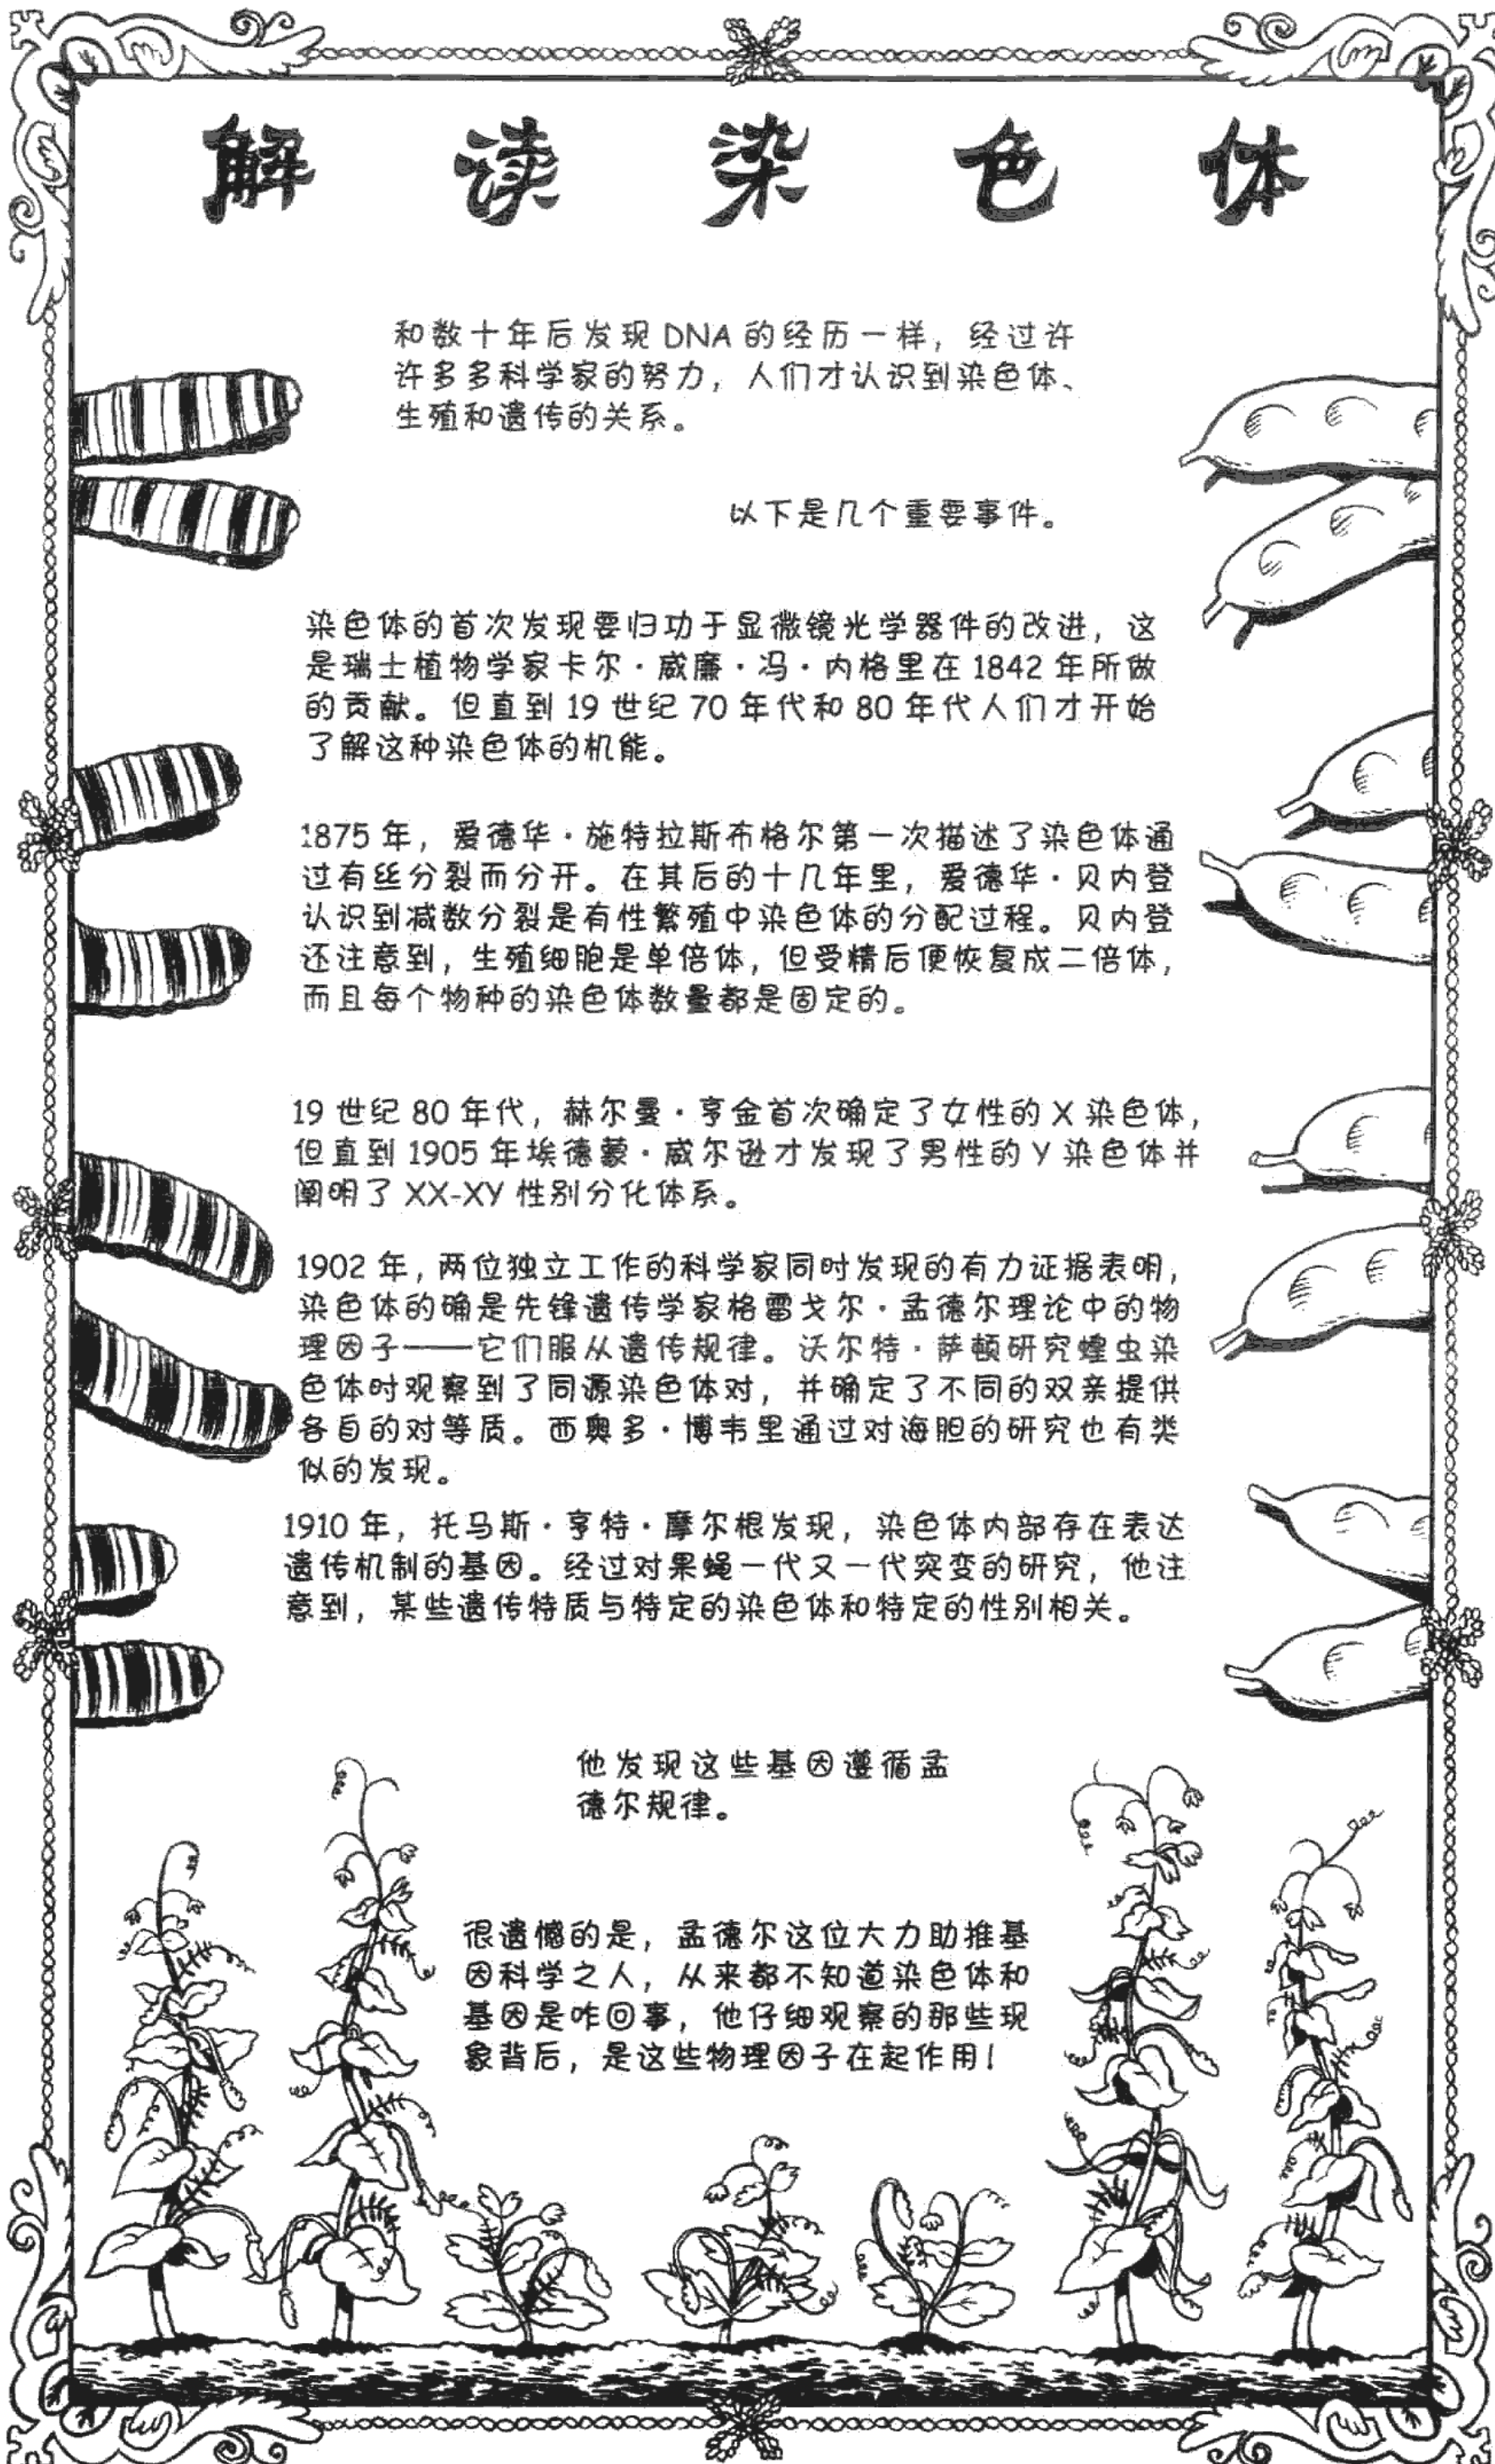 解读染色体
和数十年后发现 DNA 的经历一样，经过许
许多多科学家的努力，人们才认识到染色体、
生殖和遗传的关系。
以下是几个重要事件。
染色体的首次发现要归功于显微镜光学器件的改进，这
是瑞士植物学家卡尔·威廉·冯·内格里在 1842 年所做
的贡献。但直到 19 世纪 70 年代和 80 年代人们才开始
了解这种染色体的机能。
1875 年，爱德华·施特拉斯布格尔第一次描述了染色体通
过有丝分裂而分开。在其后的十几年里，爱德华·贝内登
认识到减数分裂是有性繁殖中染色体的分配过程。贝内登
还注意到，生殖细胞是单倍体，但受精后便恢复成二倍体，
而且每个物种的染色体数量都是固定的。
19 世纪 80 年代，赫尔曼·亨金首次确定了女性的 X 染色体，
但直到 1905 年埃德蒙·威尔逊才发现了男性的 Y 染色体并
阐明了 XX-XY 性别分化体系。
1902 年，两位独立工作的科学家同时发现的有力证据表明，
染色体的确是先锋遗传学家格雷戈尔·孟德尔理论中的物
理因子——它们服从遗传规律。沃尔特·萨顿研究蝗虫染
色体时观察到了同源染色体对，并确定了不同的双亲提供
各自的对等质。西奥多·博韦里通过对海胆的研究也有类
似的发现。
1910 年，托马斯·亨特·摩尔根发现，染色体内部存在表达
遗传机制的基因。经过对果蝇一代又一代突变的研究，他注
意到，某些遗传特质与特定的染色体和特定的性别相关。
他发现这些基因遵循孟
德尔规律。
很遗憾的是，孟德尔这位大力助推基
因科学之人，从来都不知道染色体和
基因是咋回事，他仔细观察的那些现
象背后，是这些物理因子在起作用！